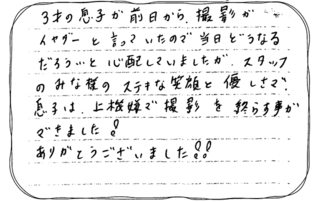 3才の息子が前日から、撮影が
イヤダーと言っていたので当日どうなる
だろう…と心配していましたが、スタッフ
のみな様のステキな笑顔と優しさで、
息子は、上機嫌で撮影を終らす事が
できました!
ありがとうございました!!